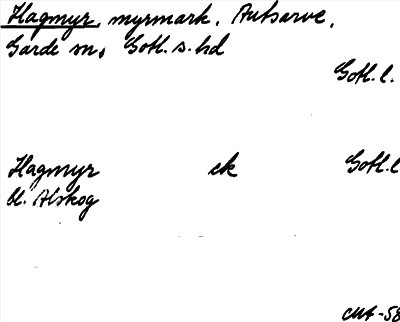 Hagmyr, myrmark, Autsarve,
Garde sn, Gotl. s. hd
Gotl. l.
Hagmyr ek Gotl. l
bl. Alskog
CMA-58